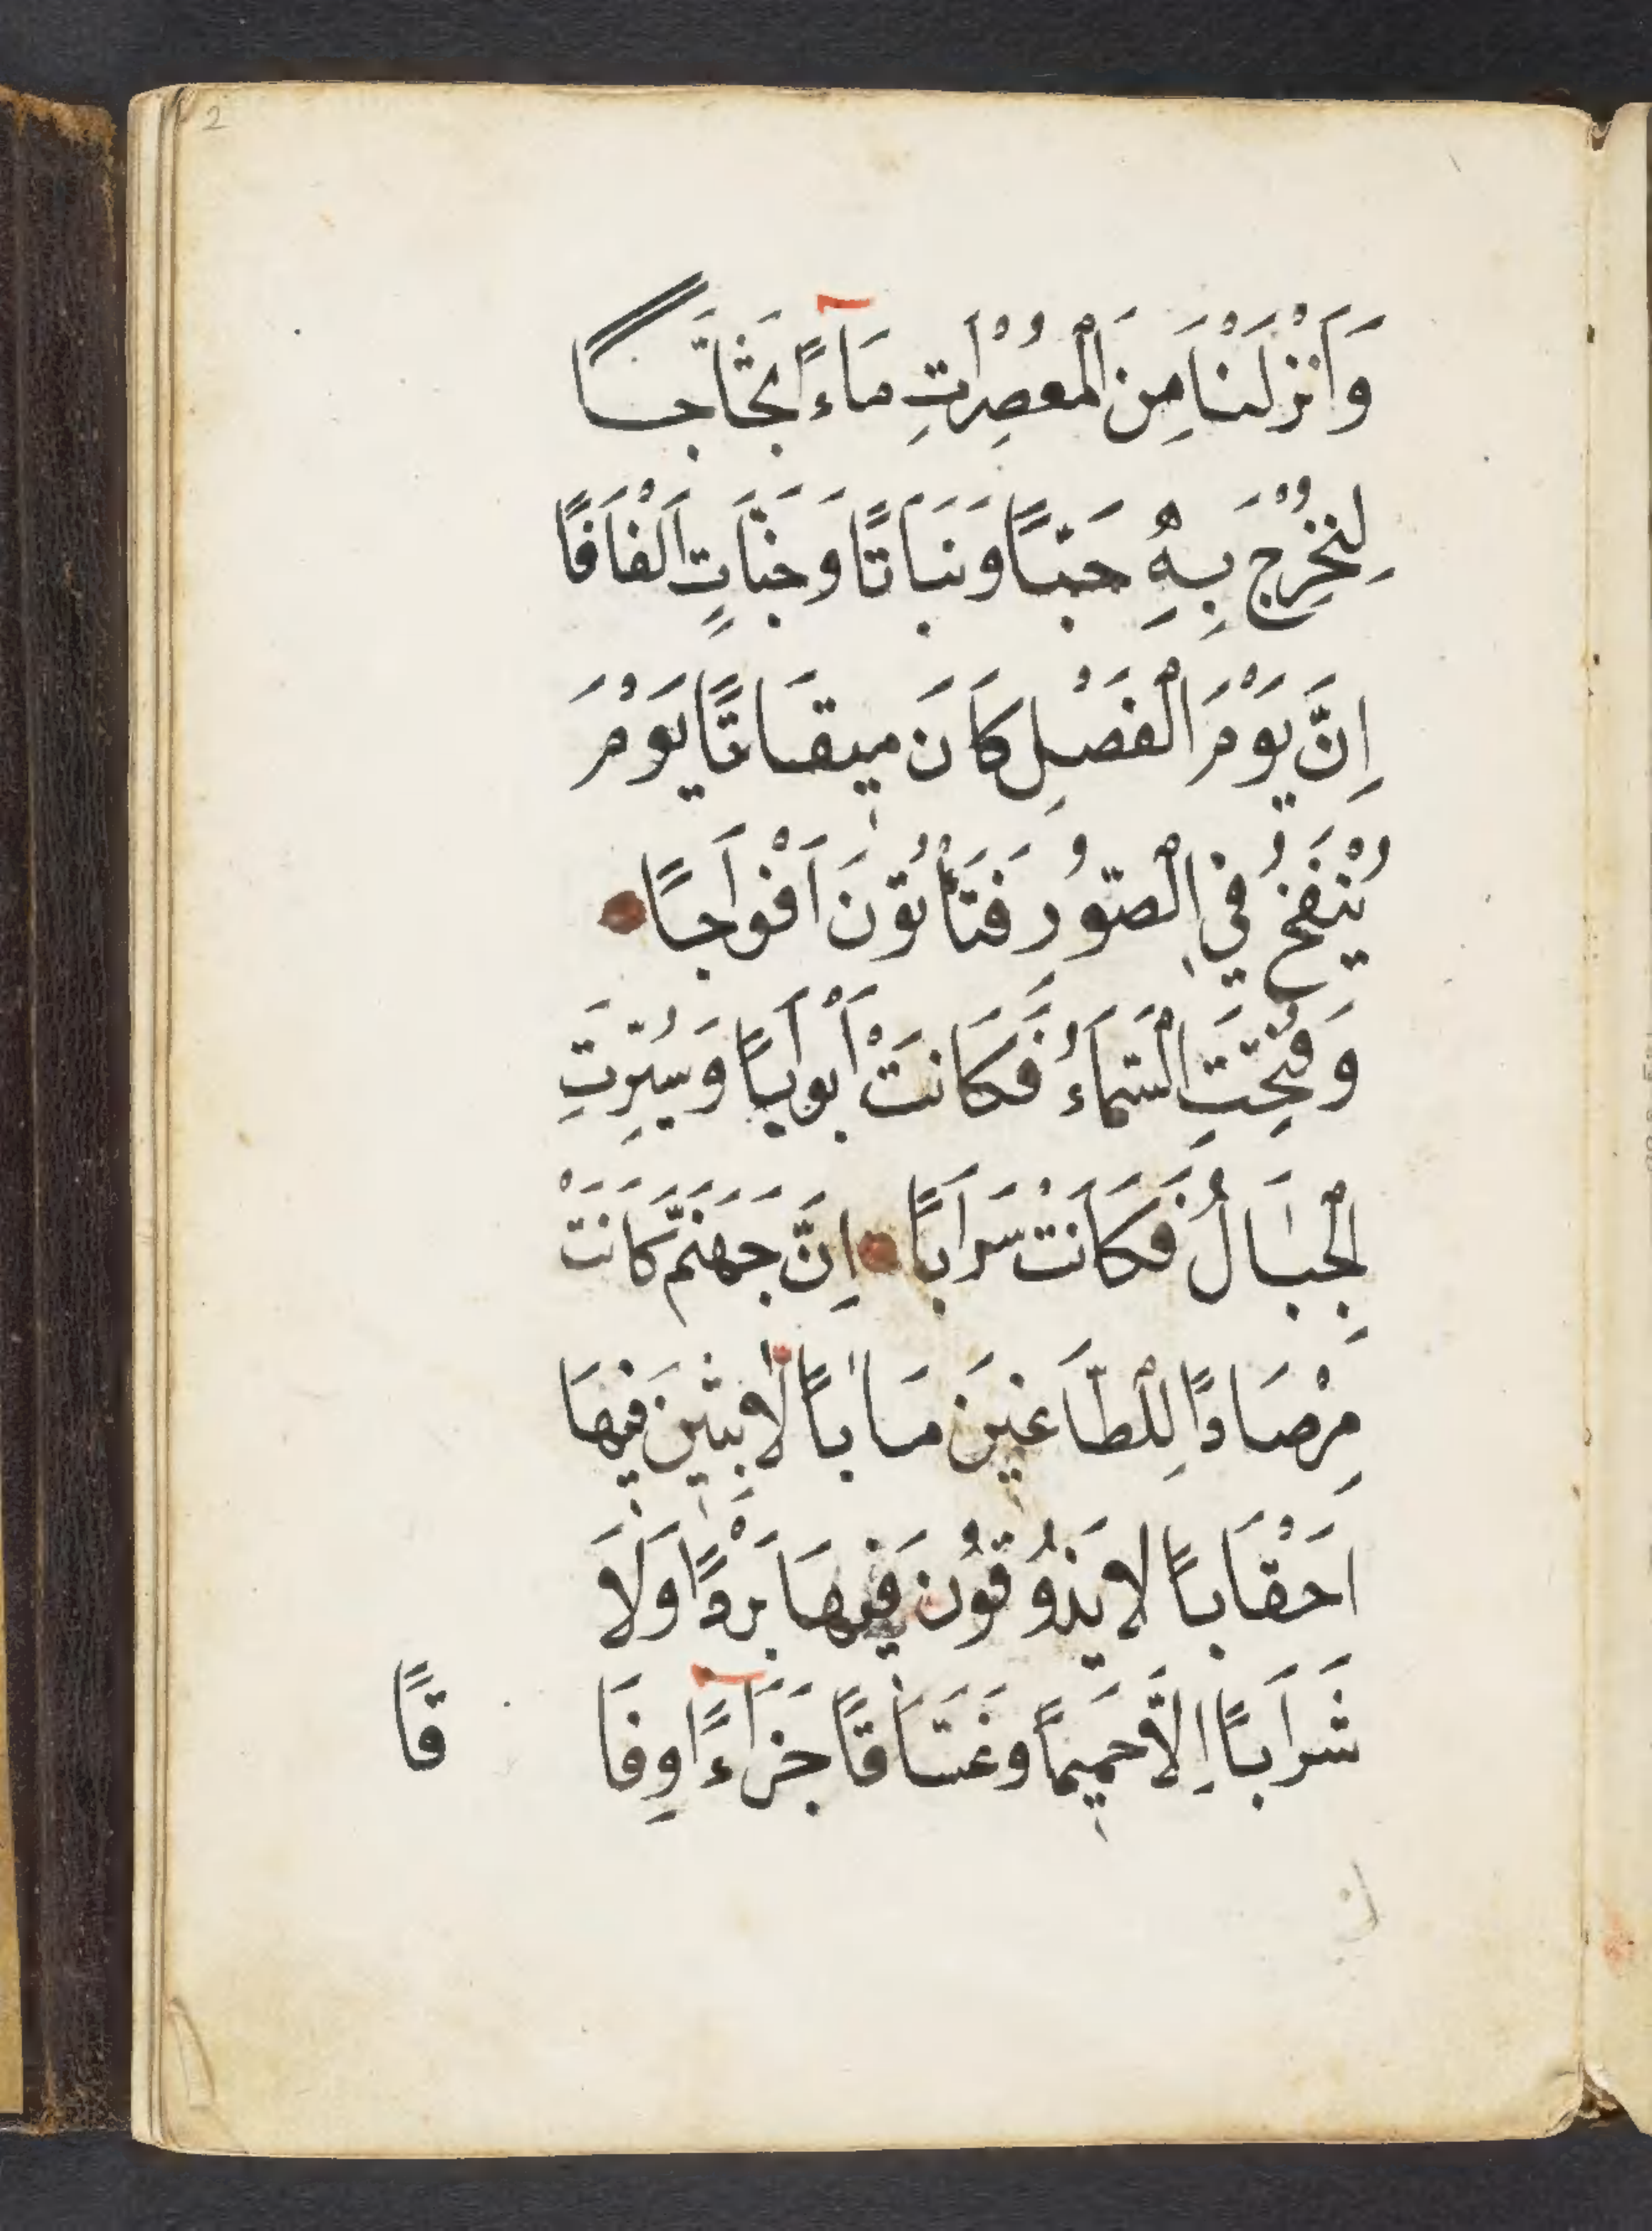 2
وَاَنْزَلْنَا مِنَ الْمُعْصِرَاتِ مَاءً ثَجَّاجًا
لِنُخْرِجَ بِهِ حَبًّا وَنَبَاتًا وَجَنَّاتٍ اَلْفَافًا
اِنَّ يَوْمَ الْفَصْلِ كَانَ مِيقَاتًا يَوْمَ
يُنْفَخُ فِي الصُّورِ فَتَأْتُونَ اَفْوَاجًا
وَفُتِحَتِ السَّمَاءُ فَكَانَتْ أَبْوَابًا وَسُيِّرَتِ
الْجِبَالُ فَكَانَتْ سَرَابًا اِنَّ جَهَنَّمَ كَانَتْ
مِرْصَادًا لِلطَّاغِينَ مَاٰبًا لَابِثِينَ فِيهَا
اَحْقَابًا لَا يَذُوقُونَ فِيهَا بَرْدًا وَلَا
شَرَابًا اِلَّا حَمِيمًا وَغَسَّاقًا جَزَاءً وِفَا
قًا